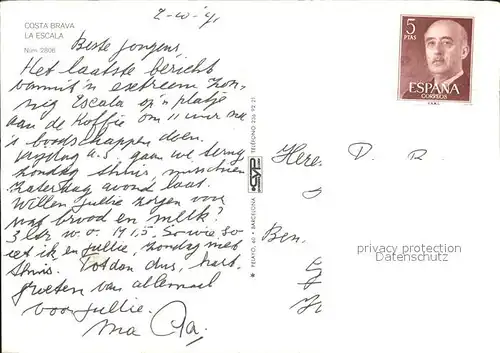 COSTA BRAVA
LA ESCALA
Núm 2808
Beste jongens,
Het laatste bericht
vanuit 'n extreem zon-
nig Escala op 'n platje
aan de Koffie om 11 uur
'n boodschappen doen.
Vrijdag a.s. gaan we terug
zondag thuis, misschien
Zaterdag avond laat.
Willen jullie zorgen voor
wat brood en melk?
3 ltr. w.o. Sowieso
eet ik en jullie, zondag met
thuis. Tot dan dus, hart.
groeten van allemaal
voor jullie.
Ma Pa.
PELAYO, 60 • BARCELONA
TELEFONO
5
PTAS
ESPAÑA
CORREOS
Here.
D. R.
Ben.
privacy protection
Datenschutz